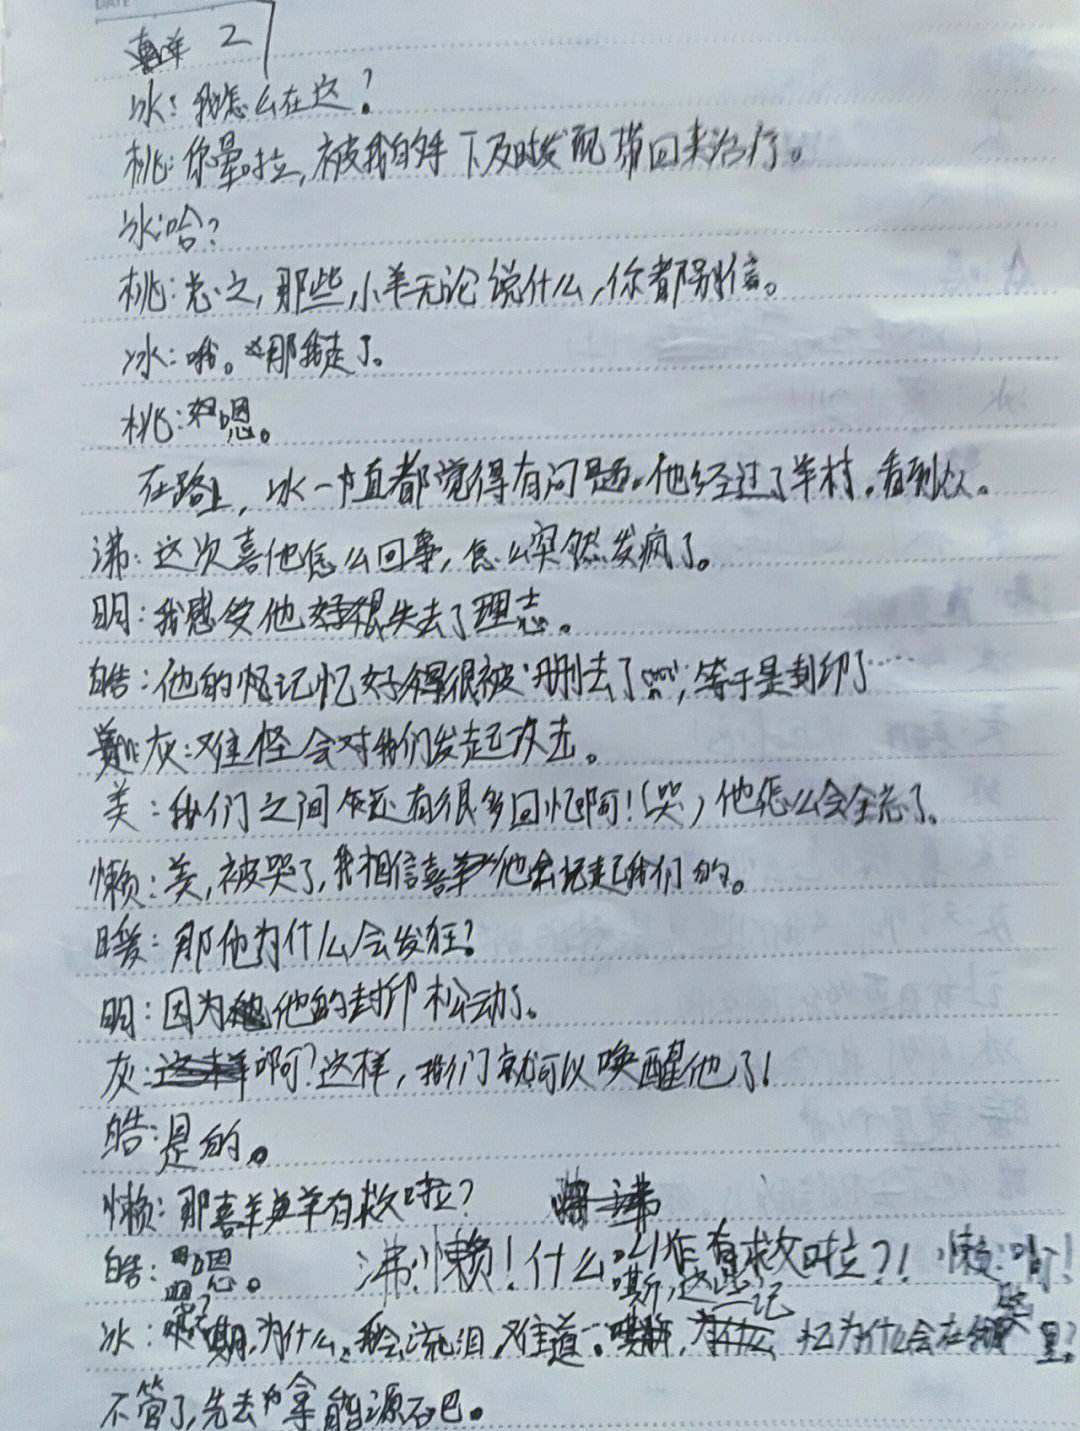 DATE
喜羊 2
冰：我怎么在这？
桃：你晕啦，被我的手下及时发配带回来治疗。
冰：哈？
桃：总之，那些小羊无论说什么，你都别信。
冰：哦。那我走了。
桃：嗯。
在路上，冰一直都觉得有问题。他经过了羊村。看到众。
沸：这次喜他怎么回事，怎么突然发疯了。
明：我感受他好很失去了理志。
皓：他的记忆好得很被删去了，等于是封印了……
灰：难怪会对我们发起攻击。
美：我们之间还有很多回忆啊！（哭）他怎么会全忘了。
懒：美，被哭了，我相信喜羊他会记起我们的。
暖：那他为什么会发狂？
明：因为他的封印松动了。
灰：啊？这样，我们就可以唤醒他了！
皓：是的。
懒：那喜羊羊有救啦？
皓：嗯。 沸：懒！什么叫作有救啦？！ 懒：哈！
冰：为什么，我会流泪，难道…嘶，这些记忆为什么会在里？
不管了，先去拿能源石吧。